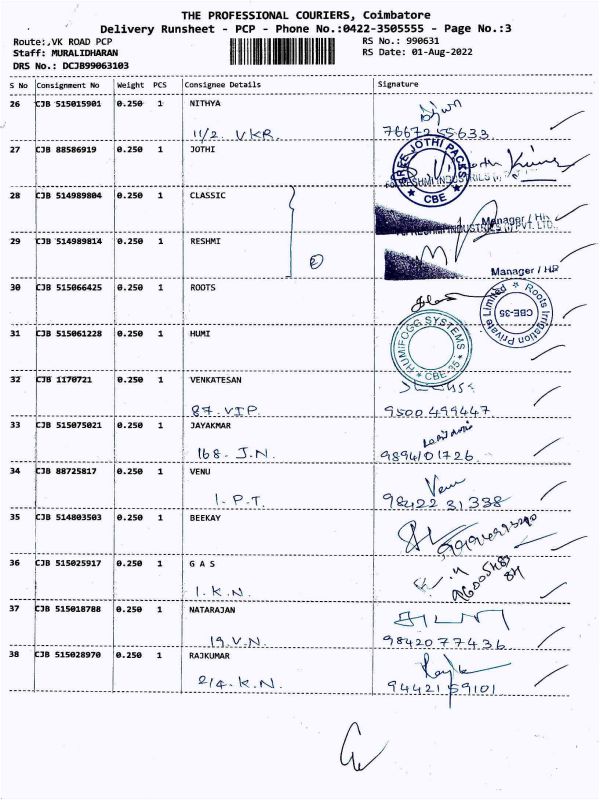 THE PROFESSIONAL COURIERS, Coimbatore
Delivery Runsheet - PCP - Phone No.:0422-3505555 - Page No.:3
Route:,VK ROAD PCP
RS No.: 990631
Staff: MURALIDHARAN
RS Date: 01-Aug-2022
DRS No.: DCJB99063103
S No Consignment No Weight PCS Consignee Details Signature
26 CJB 515015901 0.250 1 NITHYA
11/2. VKR. 7667255633
27 CJB 88586919 0.250 1 JOTHI
SREE JOTHI PACKS
* CBE *
28 CJB 514989804 0.250 1 CLASSIC
Manager / HR
29 CJB 514989814 0.250 1 RESHMI
RESHMI INDUSTRIES (I) PVT. LTD.,
2
Manager / HR
30 CJB 515066425 0.250 1 ROOTS
Roots Irrigation Private Limited *
CBE-35
31 CJB 515061228 0.250 1 HUMI
HUMIFOGG SYSTEMS
* CBE-35 *
32 CJB 1170721 0.250 1 VENKATESAN
87. VIP. 9500499447
33 CJB 515075021 0.250 1 JAYAKMAR
168. J.N. 9894101726
34 CJB 88725817 0.250 1 VENU
Venu
1. P.T. 98422 31338
35 CJB 514803503 0.250 1 BEEKAY
36 CJB 515025917 0.250 1 G A S
1. K.N.
37 CJB 515018788 0.250 1 NATARAJAN
19. V.N. 9842077436
38 CJB 515028970 0.250 1 RAJKUMAR
2/4. K.N. 9442159101